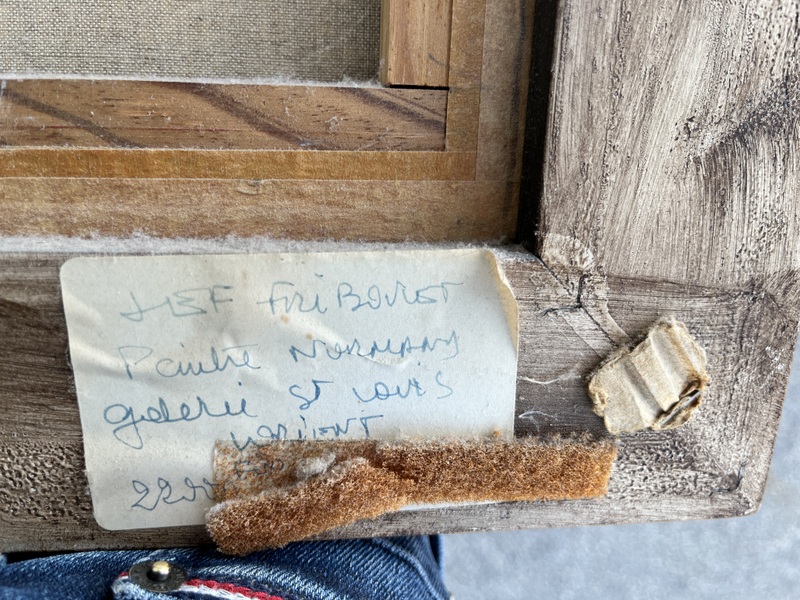 JEF FRIBOULET
Peintre NORMAND
galerie ST LOUIS
LORIENT